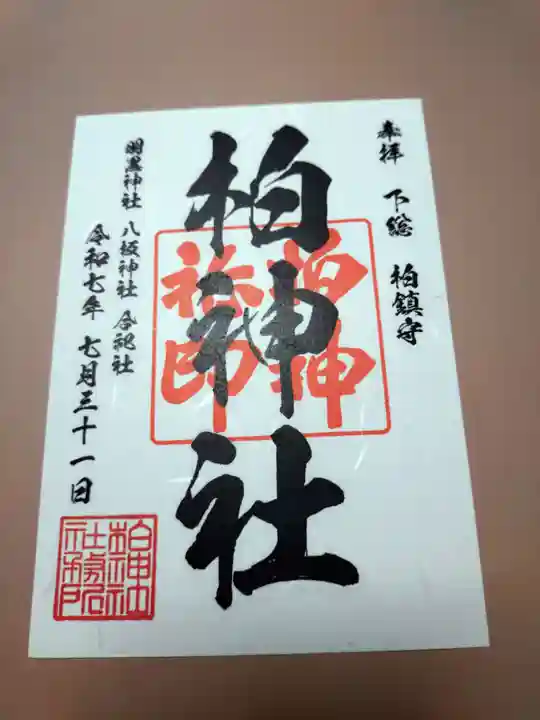 奉拝 下総 柏鎮守
柏神社
柏神社印
羽黒神社 八坂神社 合祀社
令和七年 七月三十一日
柏神社社務所